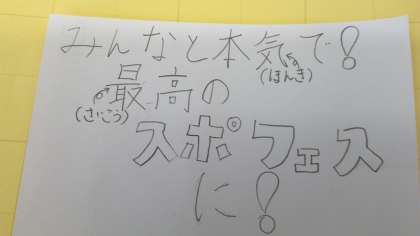 みんなと本気で!
(ほんき)
最高の
(さいこう)
スポフェス
に!